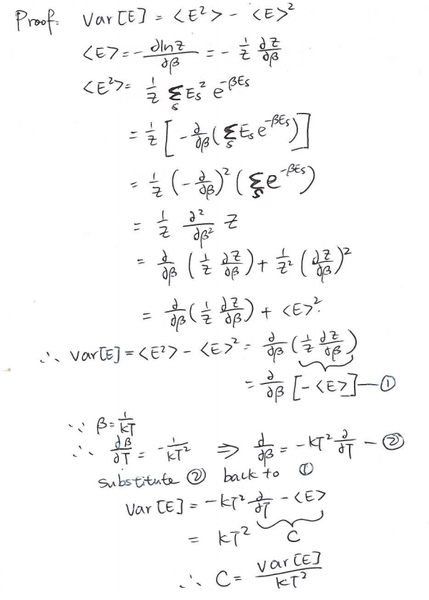 Proof: Var[E] = <E²> - <E>²
<E> = - ∂lnZ/∂β = - 1/Z ∂Z/∂β
<E²> = 1/Z Σ_s E_s² e^{-βE_s}
= 1/Z [ - ∂/∂β ( Σ_s E_s e^{-βE_s} ) ]
= 1/Z ( - ∂/∂β )² ( Σ_s e^{-βE_s} )
= 1/Z ∂²/∂β² Z
= ∂/∂β ( 1/Z ∂Z/∂β ) + 1/Z² ( ∂Z/∂β )²
= ∂/∂β ( 1/Z ∂Z/∂β ) + <E>²
∴ Var[E] = <E²> - <E>² = ∂/∂β ( 1/Z ∂Z/∂β )
= ∂/∂β [ - <E> ] — ①
∵ β = 1/kT
∴ ∂β/∂T = - 1/kT² ⇒ ∂/∂β = - kT² ∂/∂T — ②
substitute ② back to ①
Var[E] = - kT² ∂/∂T - <E>
= kT² C
∴ C = Var[E]/kT²